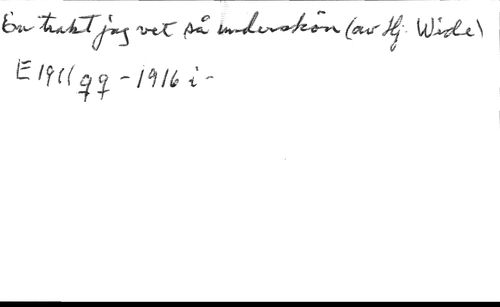 En trakt jag vet så underskön (av Hj. Wide)
E 1911 qq - 1916 i -